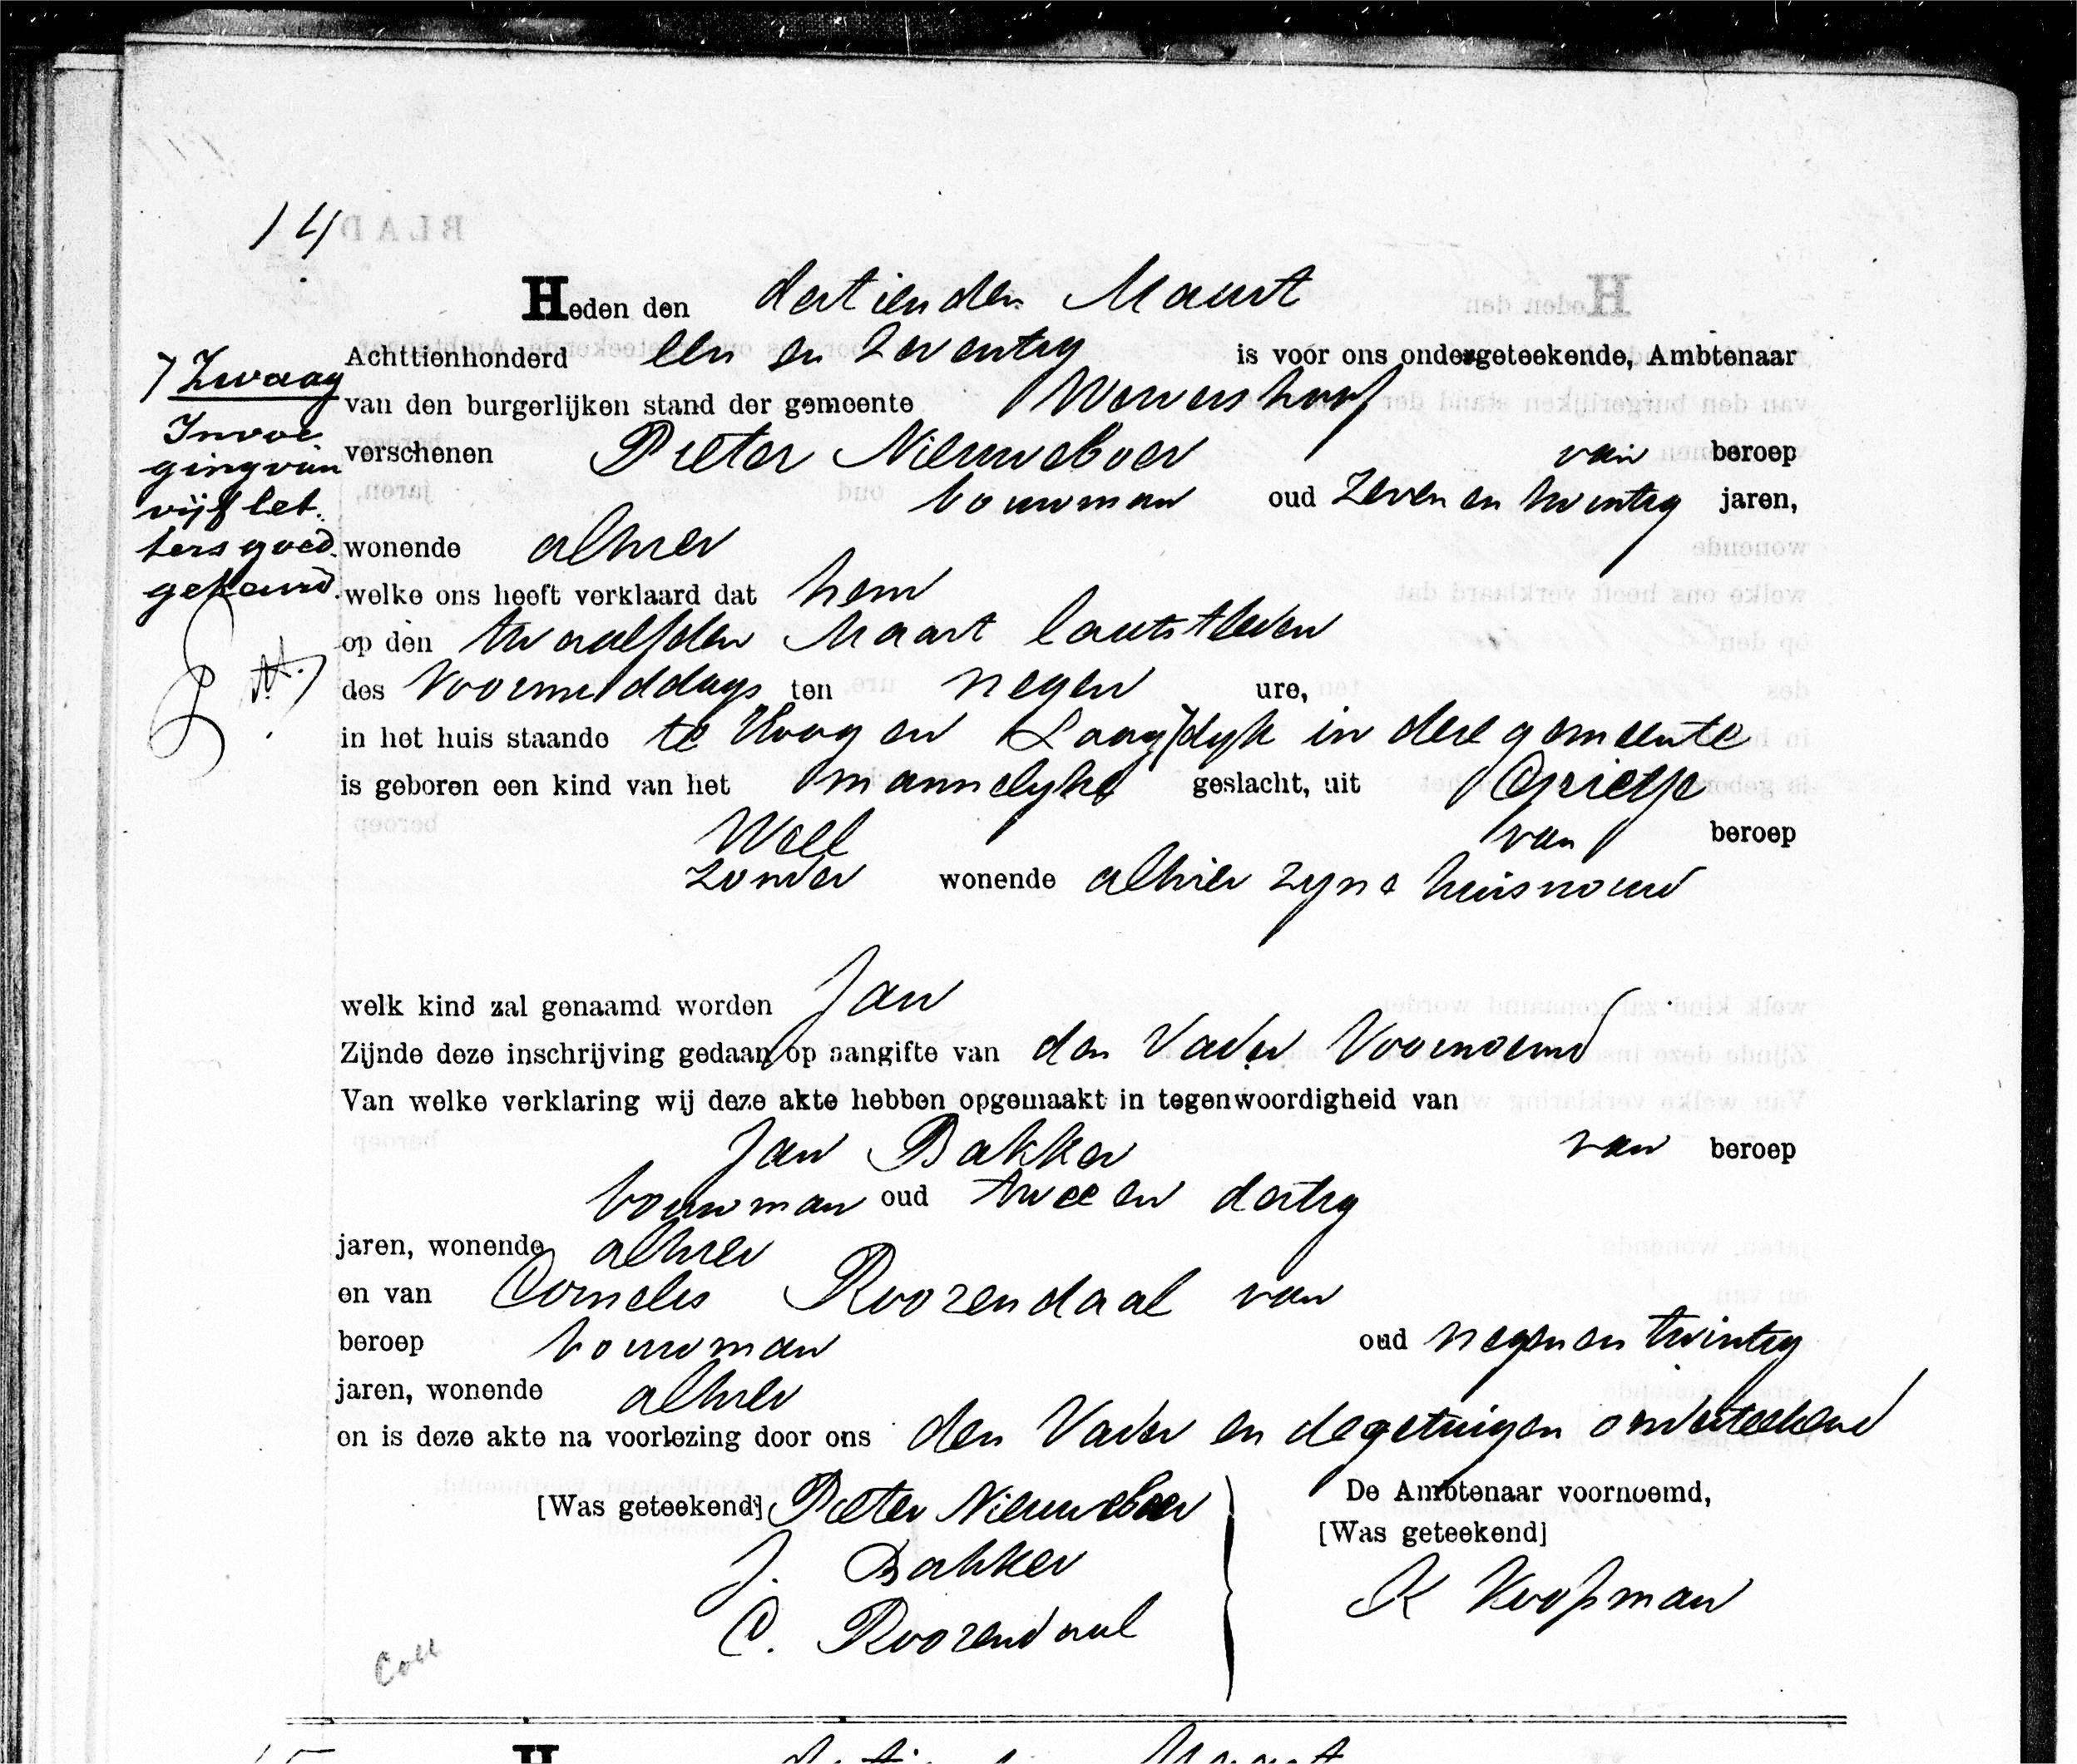 14
Heden den dertienden Maart
Achttienhonderd een en zeventig is voor ons ondergeteekende, Ambtenaar
van den burgerlijken stand der gemeente Wervershoof
verschenen Pieter Nieuweboer van beroep
bouwman oud zeven en twintig jaren,
wonende alhier
welke ons heeft verklaard dat hem
op den twaalfden Maart laatstleden
des Voormiddags ten negen ure,
in het huis staande te Hoog en Laag dyk in deze gemeente
is geboren een kind van het mannelyke geslacht, uit Grietje
Weel van beroep
zonder wonende alhier zyne huisvrouw
welk kind zal genaamd worden Jan
Zijnde deze inschrijving gedaan op aangifte van den Vader Voornoemd
Van welke verklaring wij deze akte hebben opgemaakt in tegenwoordigheid van
Jan Bakker van beroep
bouwman oud twee en dertig
jaren, wonende alhier
en van Cornelis Roozendaal van
beroep bouwman oud negen en twintig
jaren, wonende alhier
en is deze akte na voorlezing door ons den Vader en de getuigen onderteekend
[Was geteekend] Pieter Nieuweboer
J. Bakker
C. Roozendaal
De Ambtenaar voornoemd,
[Was geteekend]
K Koopman
Zwaag
Invoe
ging van
vijf let
ters goed
gekeurd.
Coll